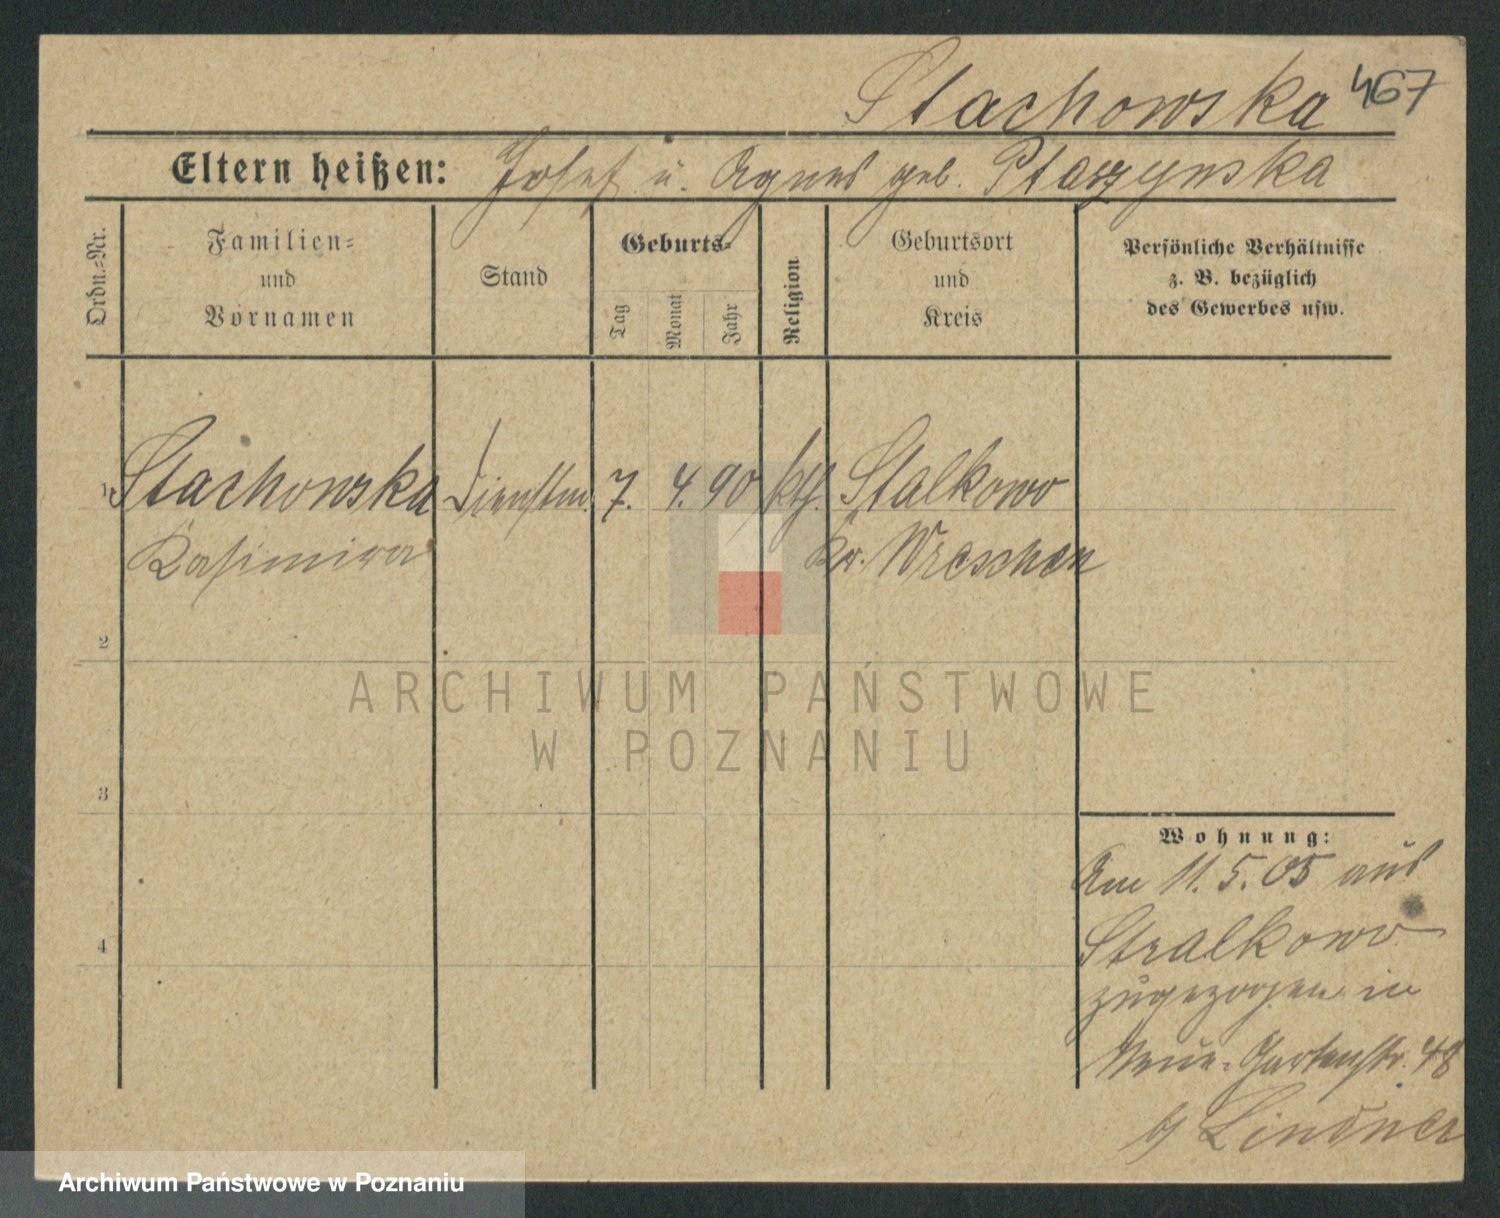 Stachowska 467
Eltern heißen: Josef u. Agnes geb. Ptaszynska
Ordn.=Nr.
Familien=
und
Vornamen
Stand
Geburts=
Tag
Monat
Jahr
Religion
Geburtsort
und
Kreis
Persönliche Verhältnisse
z. B. bezüglich
des Gewerbes usw.
1 Stachowska Dienstm. 7. 4. 90 kth. Stalkowo
Kasimira Kr. Wreschen
2
3
4
Wohnung:
Am 11.5.05 aus
Stralkowo
zugezogen in
Neue-Gartenstr. 48
b/ Lindner
ARCHIWUM PAŃSTWOWE
W POZNANIU
Archiwum Państwowe w Poznaniu